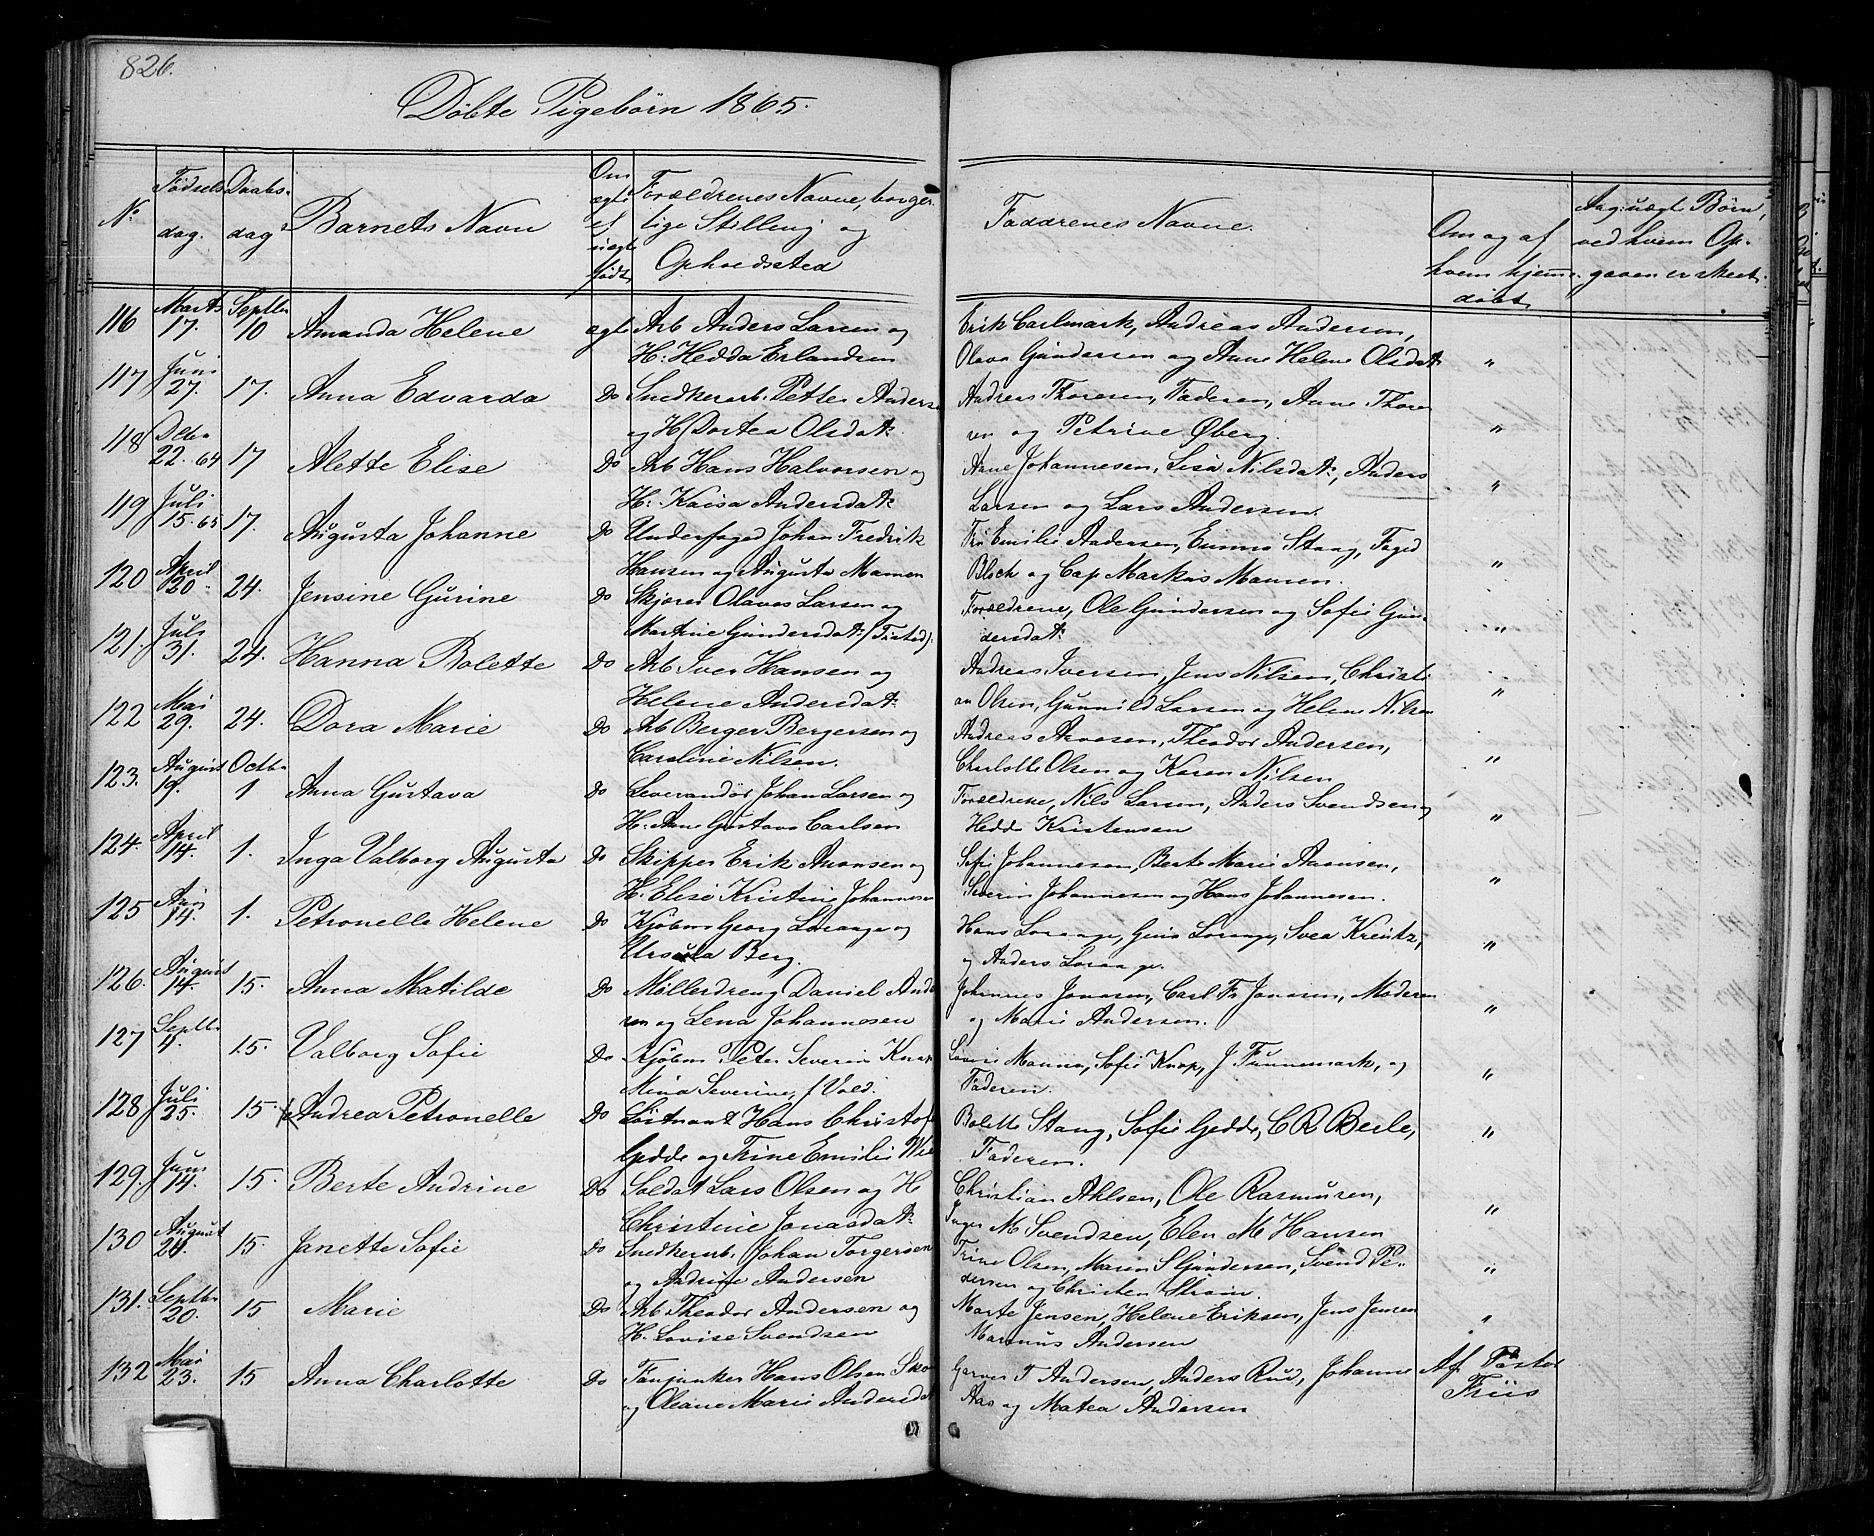 826.
Døbte Pigebørn 1865.
No
Fødsels dag.
Daabs- dag
Barnets Navn
Om ægte el uægte født
Forældrenes Navne, borgerlige Stilling og Opholdssted
Faddrenes Navne.
Om og af hvem hjemmedøbt
Ang: uægte Børn, ved hvem Opgaven er skeet.
116 Marts 17. Septbr 10 Amanda Helene ægte Arb Anders Larsen og Erik Carlmark, Andreas Andersen,
H: Hedda Erlandsen Olava Gundersen og Anne Helene Olsdat: "
117 Juni 27. 17. Anna Edvarda Do Snedkerarb. Petter Anderse Andreas Thoresen, Faderen, Anne Thore
og H Dortea Olsdat: sen og Petrine Øberg. "
118 Dcbr 22. 64 17 Alette Elise Do Arb Hans Halvorsen og Arne Johannesen, Lisa Nilsdat:, Anders
H: Kaisa Andersdat: Larsen og Lars Andersen. "
119 Juli 15. 65 17. Augusta Johanne Do Underfoged Johan Fredrik Frø Emilie Andersen, Emma Stang, Foged
Hansen og Augusta Mamen Bloch og Cap Markus Mamen. "
120 April 20. 24. Jensine Gurine Do Skjorer Olaves Larsen og Forældrene, Ole Gundersen og Sofie Gun-
Martine Gundersdat: (Tisted). dersdat: "
121. Juli 31. 24. Hanna Bolette Do Arb Iver Hansen og Andreas Iversen, Jens Nilsen, Christi
Helene Andersdat: an Olsen, Gunnild Larsen og Helene Nilsen "
122 Mai 29. 24. Dora Marie Do Arb Berger Bergersen og Andreas Arnesen, Theodor Andersen,
Caroline Nilsen. Charlotte Olsen og Karen Nilsen "
123. August 19. Octbr 1 Anna Gustava Do Leverandør Johan Larsen og Forældrene, Nils Larsen, Anders Svendsen og
H: Ane Gustava Carlsen Hedda Kristensen "
124. April 14. 1. Inga Valborg Augusta Do Skipper Erik Amonsen og Sofie Johannesen, Berte Marie Aamonsen,
H. Elise Kristine Johannesen Severin Johannesen og Hans Johannesen. "
125 14. 1. Petronelle Helene Do Kjøbm Georg Lorange og Hans Lorange, Gina Lorange, Svea Kreutz,
Ursula Berg. og Anders Lorange. "
126. August 14. 15. Anna Matilde Do Møllerdreng Daniel Ande Johannes Jonasen, Carl Fr Jonasen, Moderen
rsen og Lena Johannesen og Marie Andersen. "
127 Septbr 4. 15. Valborg Sofie Do Kjøbm Peter Severin Knap Lovise Manna, Sofie Knap, J. Tunnemark, og
Mina Severine, f Vold. Faderen. "
128 Juli 25. 15. Andrea Petronelle Do Løitnant Hans Christof Bolette Stang, Sofie Gedde, C R Berle,
Gedde og Trine Emilie Wi Faderen. "
129. Juni 14. 15. Berte Andrine Do Soldat Lars Olsen og H Christian Ahlsen, Ole Rasmusen,
Christine Jonasdat: Inger M Svendsen, Elen M Hansen "
130 August 20. 15. Janette Sofie Do Snedkerarb. Johan Torgersen Trine Olsen, Maren S Gundersen, Svend Pe-
og Andrine Andersen dersen og Christen Strøm. "
131. Septbr 20. 15 Marie Do Arb Theodor Andersen og Marte Jensen, Helene Eriksen, Jens Jensen
H. Lovise Svendsen Marenus Andersen "
132 Mai 23. 15 Anna Charlotte Do Fanjunker Hans Olsen Sko T Andersen, Anders Rud, Johanne Af Pastor
og Oleane Marie Andersdat Aas og Matea Andersen Friis